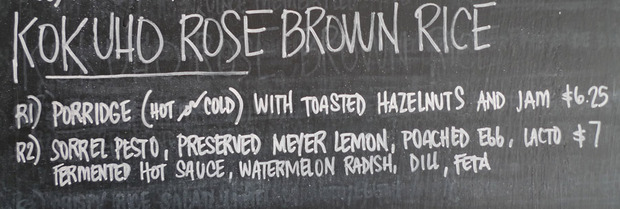 KOKUHO ROSE BROWN RICE
R1) PORRIDGE (HOT COLD) WITH TOASTED HAZELNUTS AND JAM $6.25
R2) SORREL PESTO, PRESERVED MEYER LEMON, POACHED EGG, LACTO $7
FERMENTED HOT SAUCE, WATERMELON RADISH, DILL, FETA